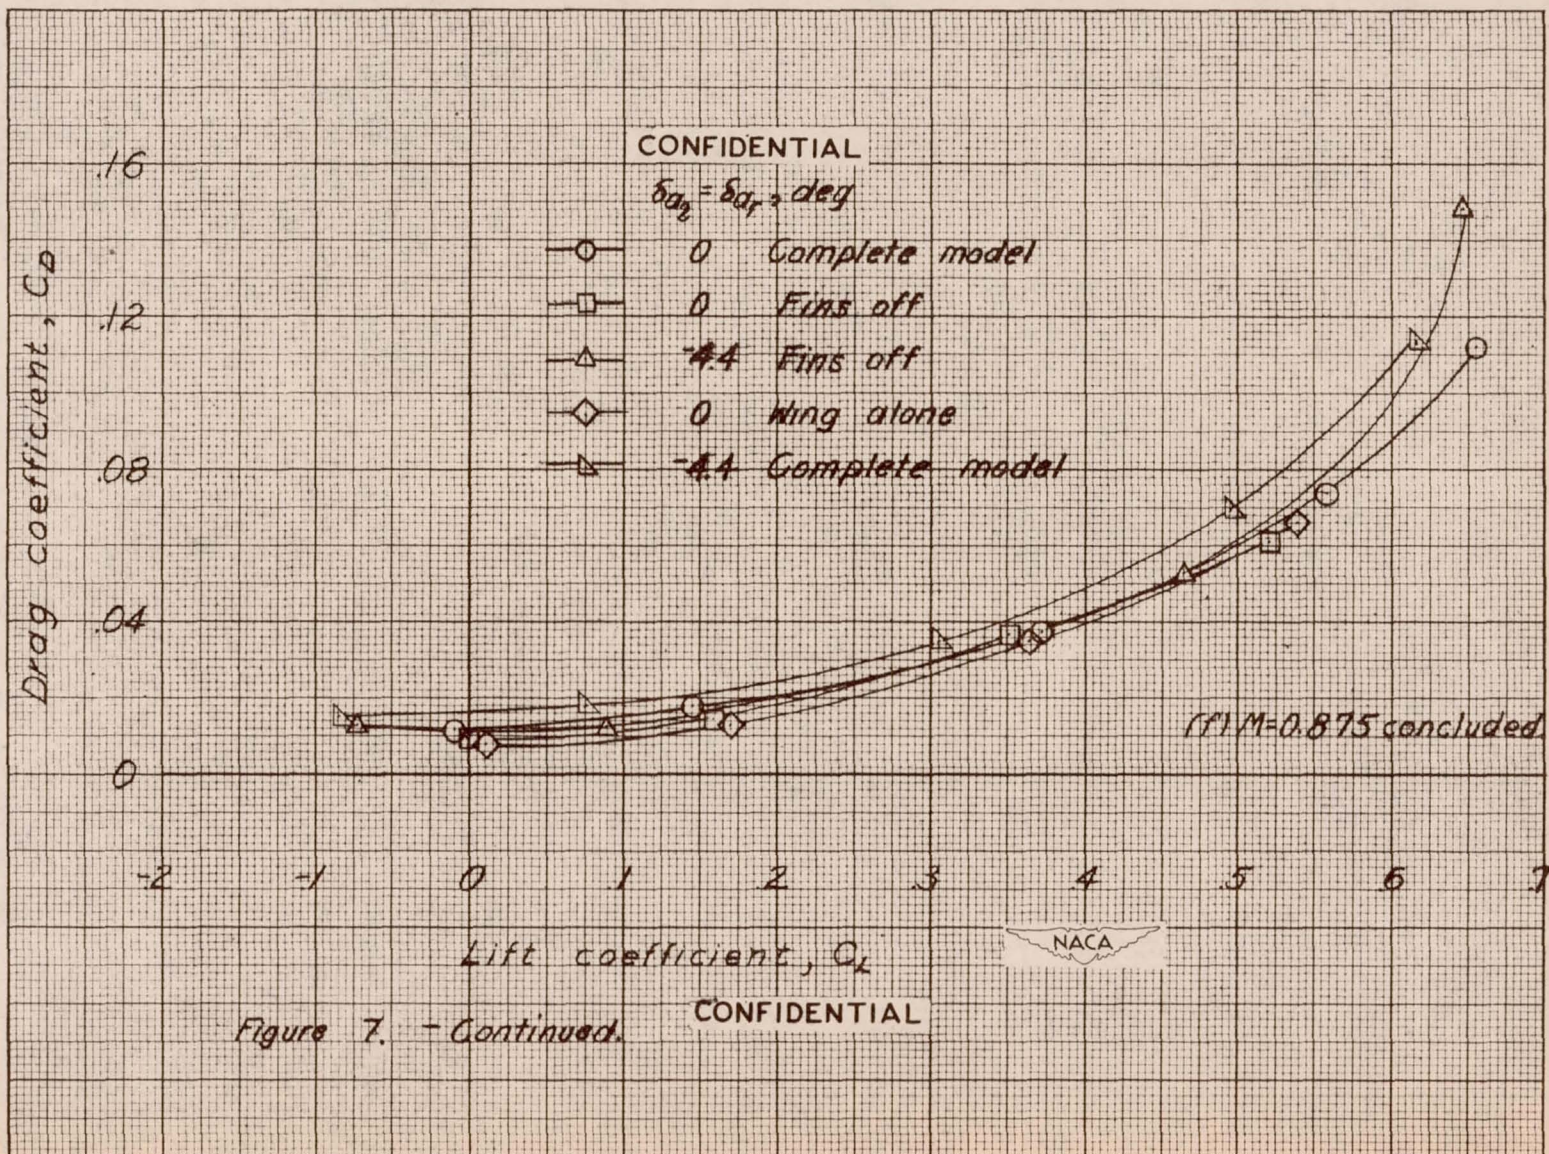 CONFIDENTIAL
δa₂ = δaᵣ, deg
0 Complete model
0 Fins off
-4.4 Fins off
0 Wing alone
-4.4 Complete model
Drag coefficient, C_D
.16
.12
.08
.04
0
(f) M=0.875 concluded.
-.2 -.1 0 .1 .2 .3 .4 .5 .6 .7
Lift coefficient, C_L
NACA
CONFIDENTIAL
Figure 7. - Continued.